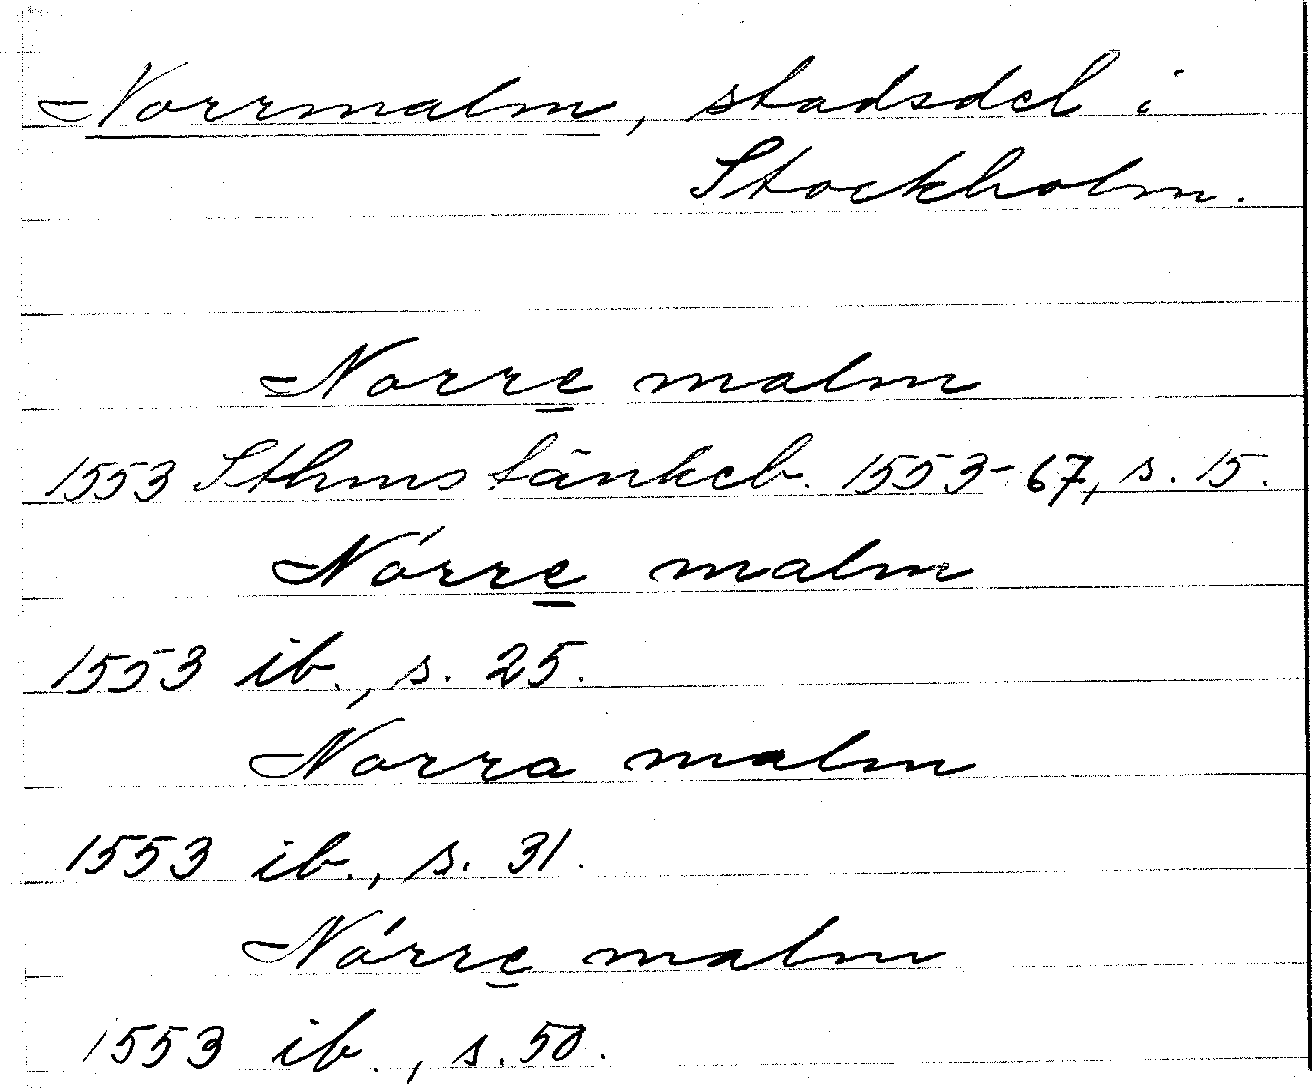 Norrmalm, stadsdel i
Stockholm.
Norre malm
1553 Sthms tänkeb. 1553-67, s. 15.
Nórre malm
1553 ib., s. 25.
Norra malm
1553 ib., s. 31.
Nórre malm
1553 ib., s. 50.